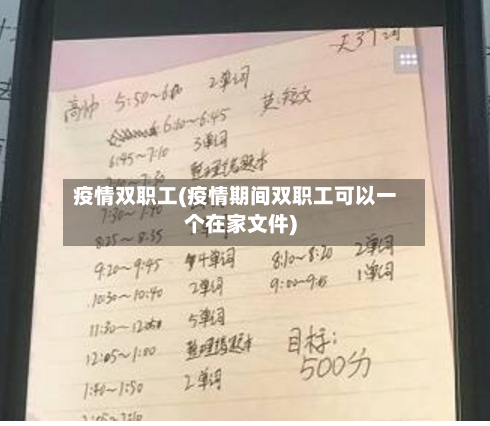 天37词
高帅 5:50~6:10 2单词
英:短文
6:10~6:45
6:45~7:10 3单词
整理错题本
疫情双职工(疫情期间双职工可以一
个在家文件)
8:25~8:35
9:20~9:45 4单词 8:10~8:20 2单词
10:30~10:40 2单词 9:00~9:05 1单词
11:30~12:00 5单词
12:05~1:00 整理错题本
目标:
500分
1:40~1:50 2单词